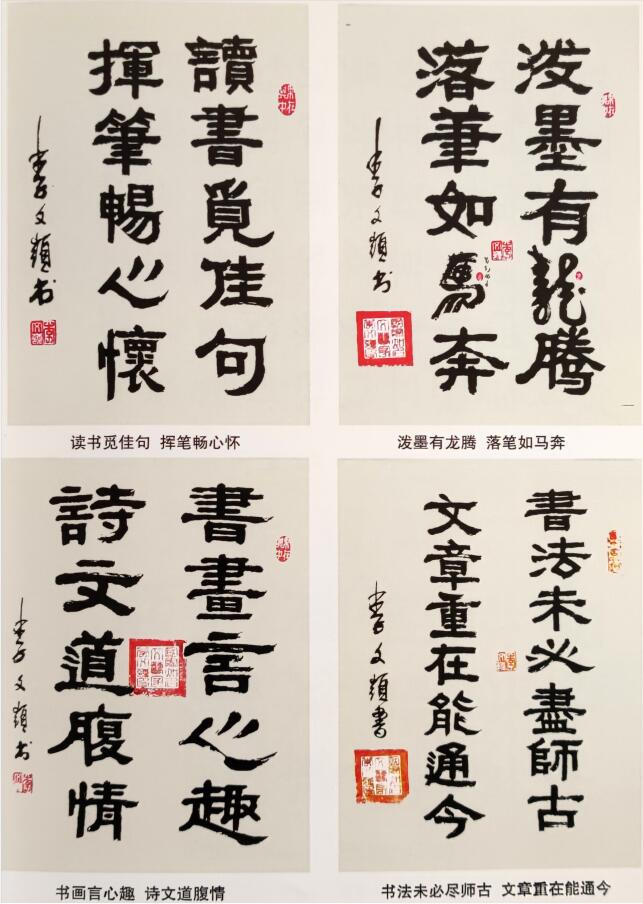 讀書覓佳句
揮筆暢心懷
李文顯书
读书觅佳句 挥笔畅心怀
泼墨有龍腾
落筆如馬奔
李文顯书
泼墨有龙腾 落笔如马奔
書畫言心趣
詩文道腹情
李文顯书
书画言心趣 诗文道腹情
書法未必盡師古
文章重在能通今
李文顯書
书法未必尽师古 文章重在能通今